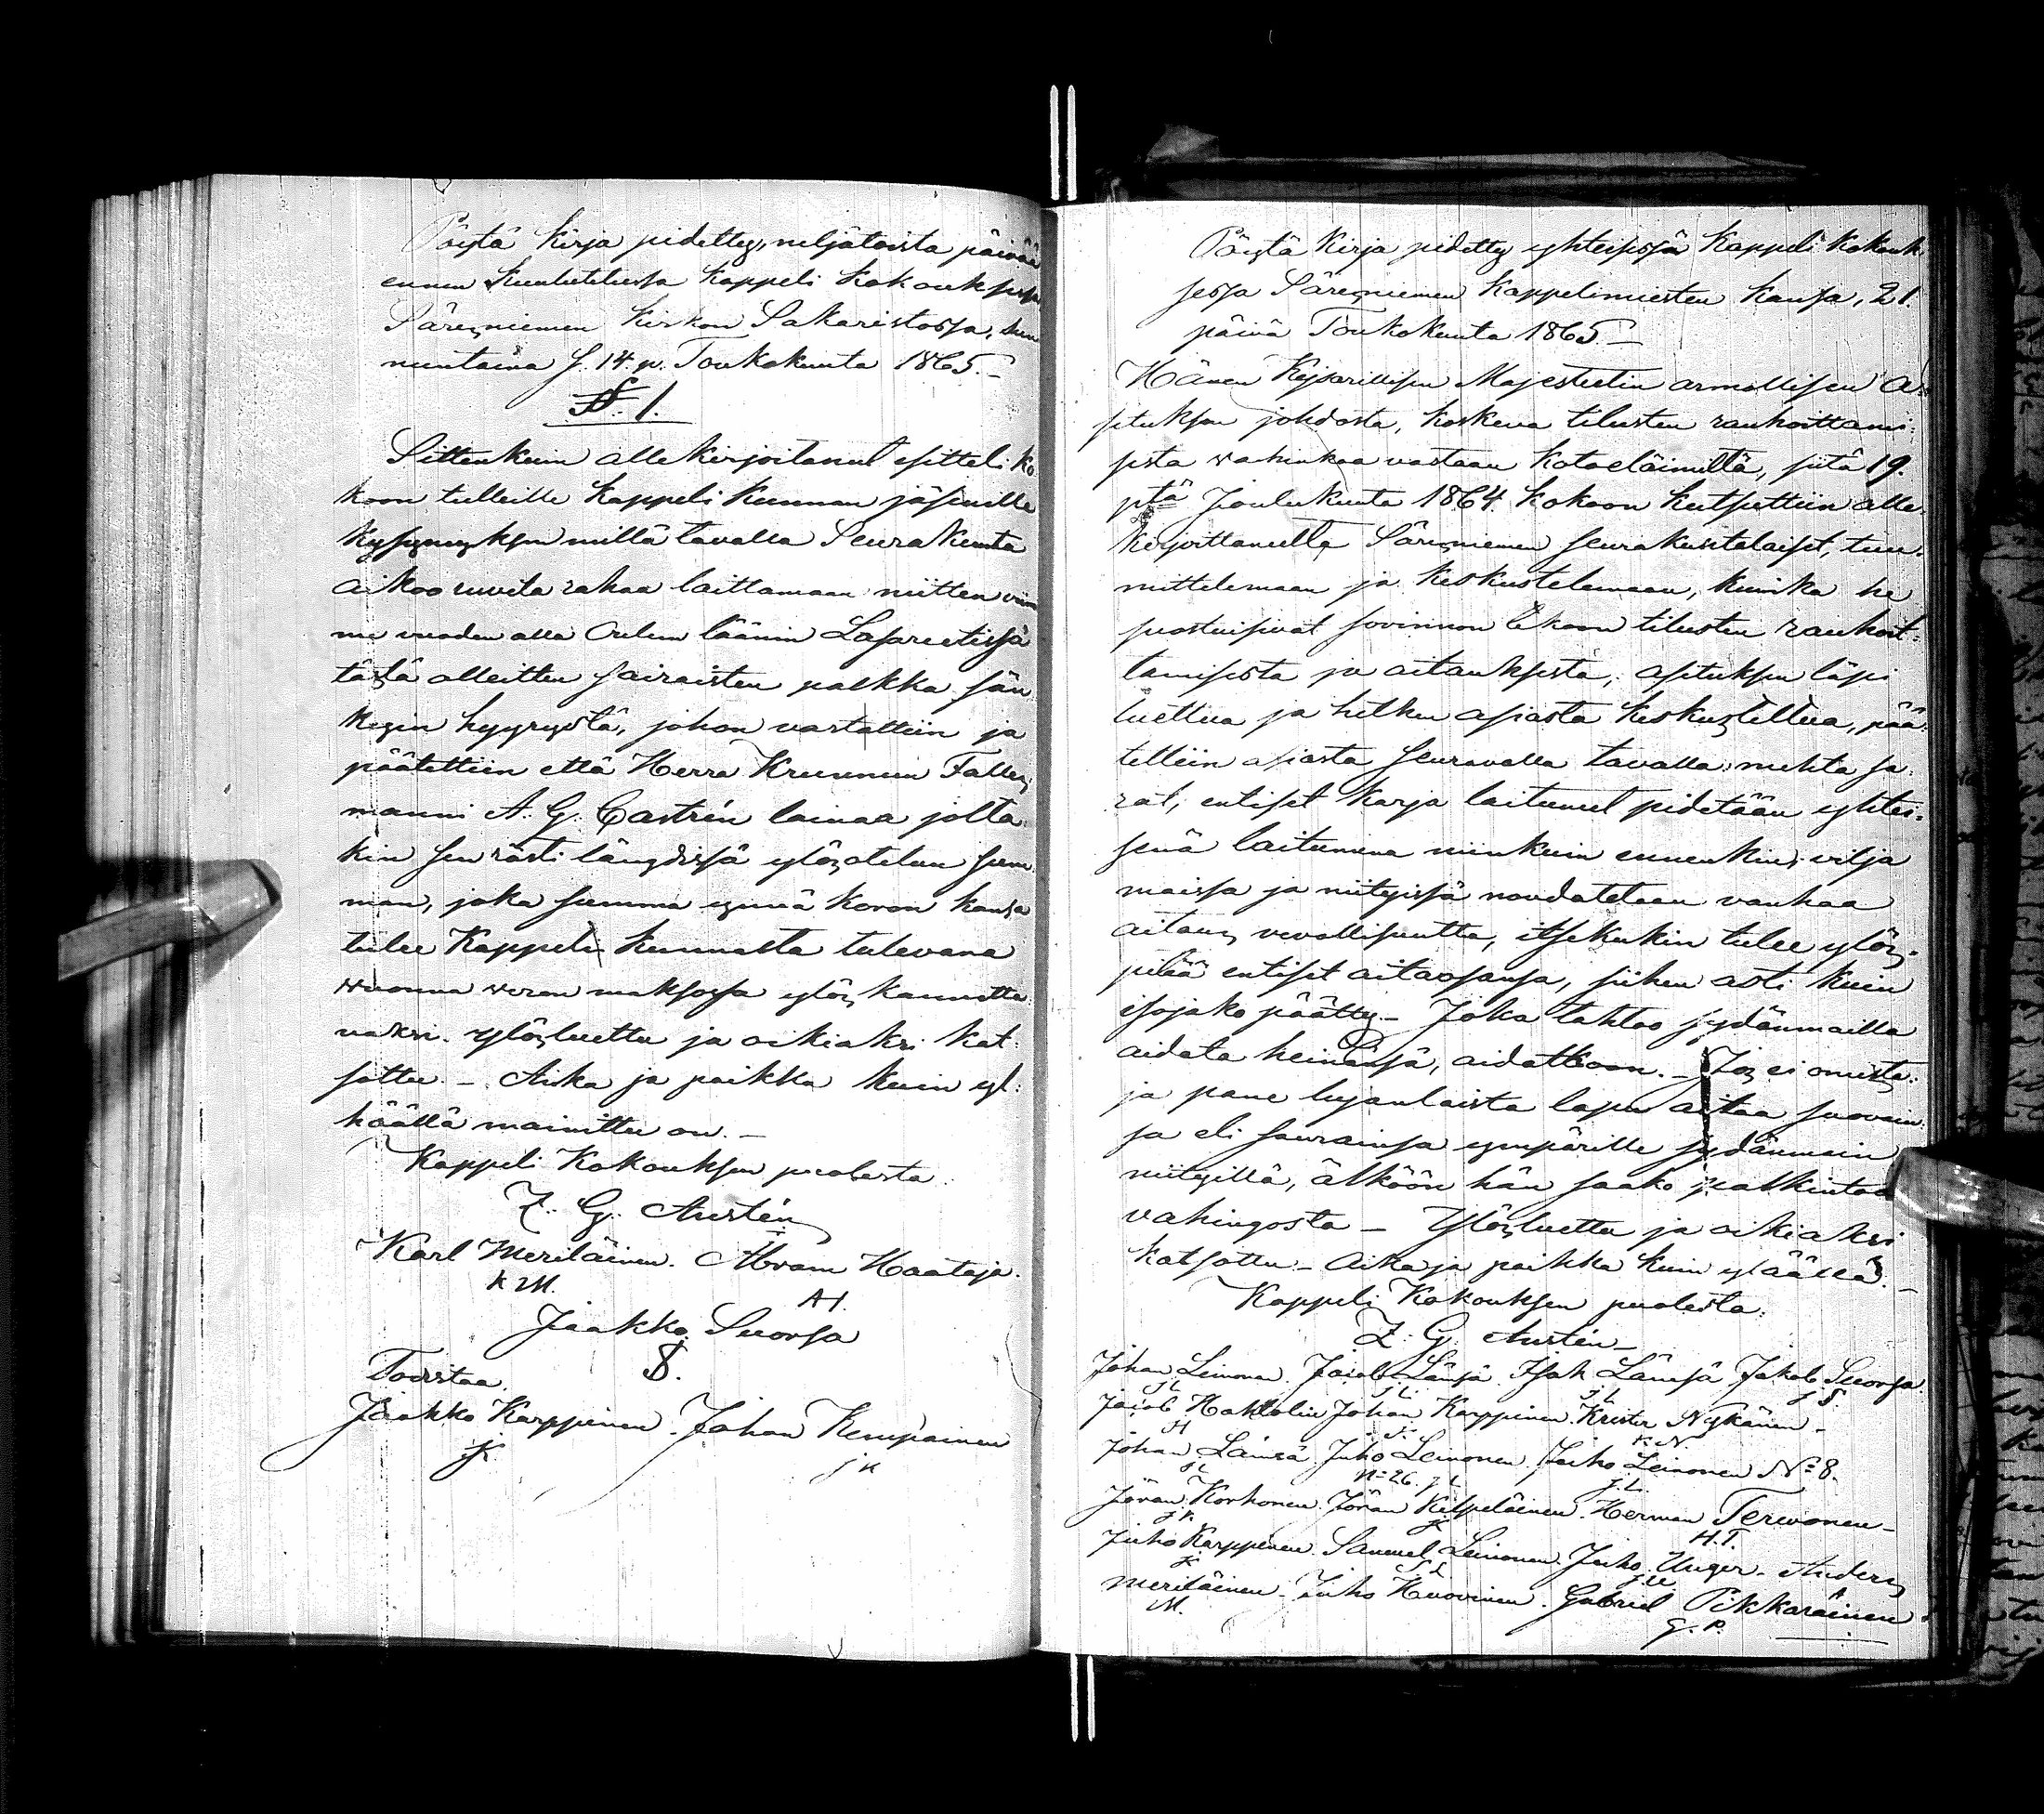 Pöytä Kirja pidetty, neljätoista päivää
ennen Kuulutetussa Kappeli Kokouksessa,
Säreisniemen Kirkon Sakaristossa, sun
nuntaina j. 14. p. Toukokuuta 1865.–
§. 1.
Sittenkuin allekirjoitanut esitteli ko
koon tulleille Kappeli Kunnan jäsenille
Kysymyksen millä tavalla Seurakunta
aikoo ruveta rahaa laittamaan niitten viim
me vuoden alla Oulun läänin Lasareetissä
tästä olleitten sairaisten palkka sän
kyin hyyrystä, johon vastattiin ja
päätettiin että Herra Kruunun Falles
manni A. G. Castrén lainaa jolta
kin sen rästi längdissä ylösotetun sum
man, joka summa ynnä koron kanssa
tulee Kappeli kunnasta tulevana
vuonna veron maksossa ylöskannetta
vaksi. Ylösluettu ja oikiaksi kat:
sottu. – Aika ja paikka kuin yl:
häällä mainittu on. –
Kappeli Kokouksen puolesta
Z. G. Austén
Karl Meriläinen. Abram Haataja.
K M. AH.
Jaakko Suorsa
S.
Todistaa.
Jaakko Karppinen. Johan Kemppainen
JK JK
Pöytä Kirja pidetty yhteisessä Kappeli Kokouk:
sessa Säreisniemen Kappelimiesten kanssa, 21.
päivä Toukokuuta 1865.–
Hänen Keisarillisen Majesteetin armollisen A:
setuksen johdosta, koskeva tilusten rauhoittami:
sesta vahinkoa vastaan kotoeläimiltä, siitä 19.
stä Joulukuuta 1864. kokoon kutsuttiin alle:
kirjoittaneelta Säreisniemen seurakuntalaiset, tuu:
mittelemaan ja keskustelemaan, kuinka he
suostuisivat sovinnon tekoon tilusten rauhoit:
tamisesta ja aitauksesta, asetuksen läpi
luettua ja hetken asiasta keskusteltua, pää:
tettiin asiasta seuravalla tavalla: mehtä sa:
rat, entiset karja laitumet pidetään yhtei:
senä laitumena niinkuin ennenkin, vilja
maissa ja niityissä noudatetaan vanhaa
aitaus vevollisuutta, itsekukin tulee ylös
pitää entiset aitaosansa, siihen asti kuin
isojako päätty. – Joka tahtoo sydänmailla
aidata heinänsä, aidatkoon. – Jos ei omista:
ja pane lujanlaista lapa aitaa suovain:
sa eli saurainsa ympärille sydänmain
niityillä, älköön hän saako palkintoa
vahingosta – Ylösluettu ja oikiaksi
katsottu – Aika ja paikka kuin ylääLLä. –
Kappeli Kokouksen puolesta:
Z. G. Austén –
Johan Leinonen. Jacob Länsä. Isak Länsä Jakob Suorsa.
JL JL. IL JS.
Jacob Johan Karppinen. Krister Nykänen –
JH K.N.
Johan Länsä Juho Leinonen Juho Leinonen No 8.
JL No 26. J L. J. L.
Jöran Korhonen. Jöran Kilpeläinen. Herman Tervonen –
J K. JK H.T.
Juho Karppinen. Samuel Leinonen. Juho Unger – Anders
JK S L J.U
Meriläinen – Juho Huovinen. Gabriel Pikkaräinen
M. G. P.